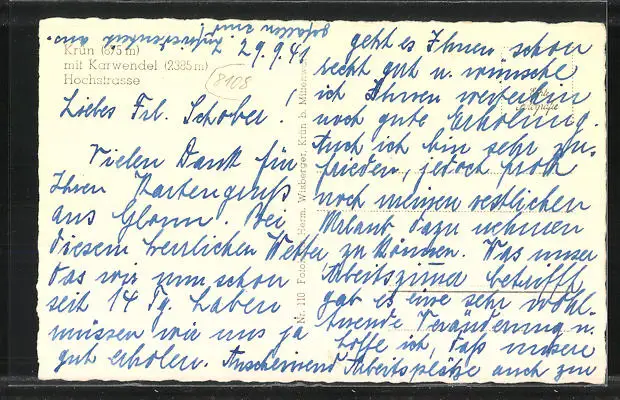 Krün (875 m)
mit Karwendel (2385 m)
Hochstrasse
29.9.41
8108
Liebes Frl. Schober!
Vielen Dank für
Ihren Kartengruß
aus Glonn. Bei
diesem herrlichen Wetter
das wir nun schon
seit 14 Tg. haben
müssen wir uns ja
gut erholen. Anscheinend
geht es Ihnen schon
recht gut u. wünsche
ich Ihnen weiterhin
noch gute Erholung.
Auch ich bin sehr zu-
frieden, jedoch froh
noch meinen restlichen
Urlaub dazu nehmen
zu können. Was unser
Arbeitszimmer betrifft
gab es eine sehr wohl-
tuende Veränderung u.
hoffe ich, daß unsere
Arbeitsplätze auch zur
Zufriedenheit aus-
gefallen sind.
Nr. 110 Foto Herm. Wisberger, Krün b. Mittenwald